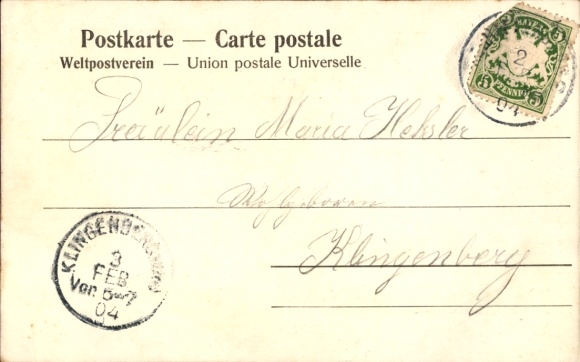 Postkarte — Carte postale
Weltpostverein — Union postale Universelle
BAYERN
5 5
PFENNIG
2
04
Fräulein Maria Heksler
Wohlgeboren
Klingenberg
KLINGENBERG
3
FEB
Vor. 5-7
04